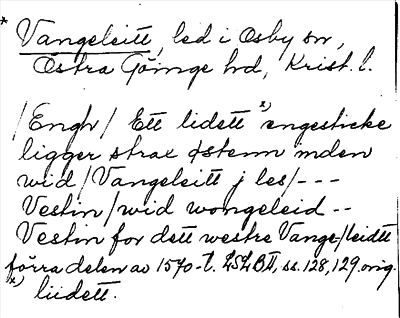 * Vangeleitt, led i Osby sn,
Östra Göinge hd, Krist. l.
/Engh/ Ett lidett x) engesticke
ligger strax östenn inden
wid /Vangeleitt j les/ ---
Vestin /wid wongeleid --
Vestin for dett westre Vange/leidtt
förra delen av 1570-t. LSLB II, ss. 128, 129. orig.
x) liidett.